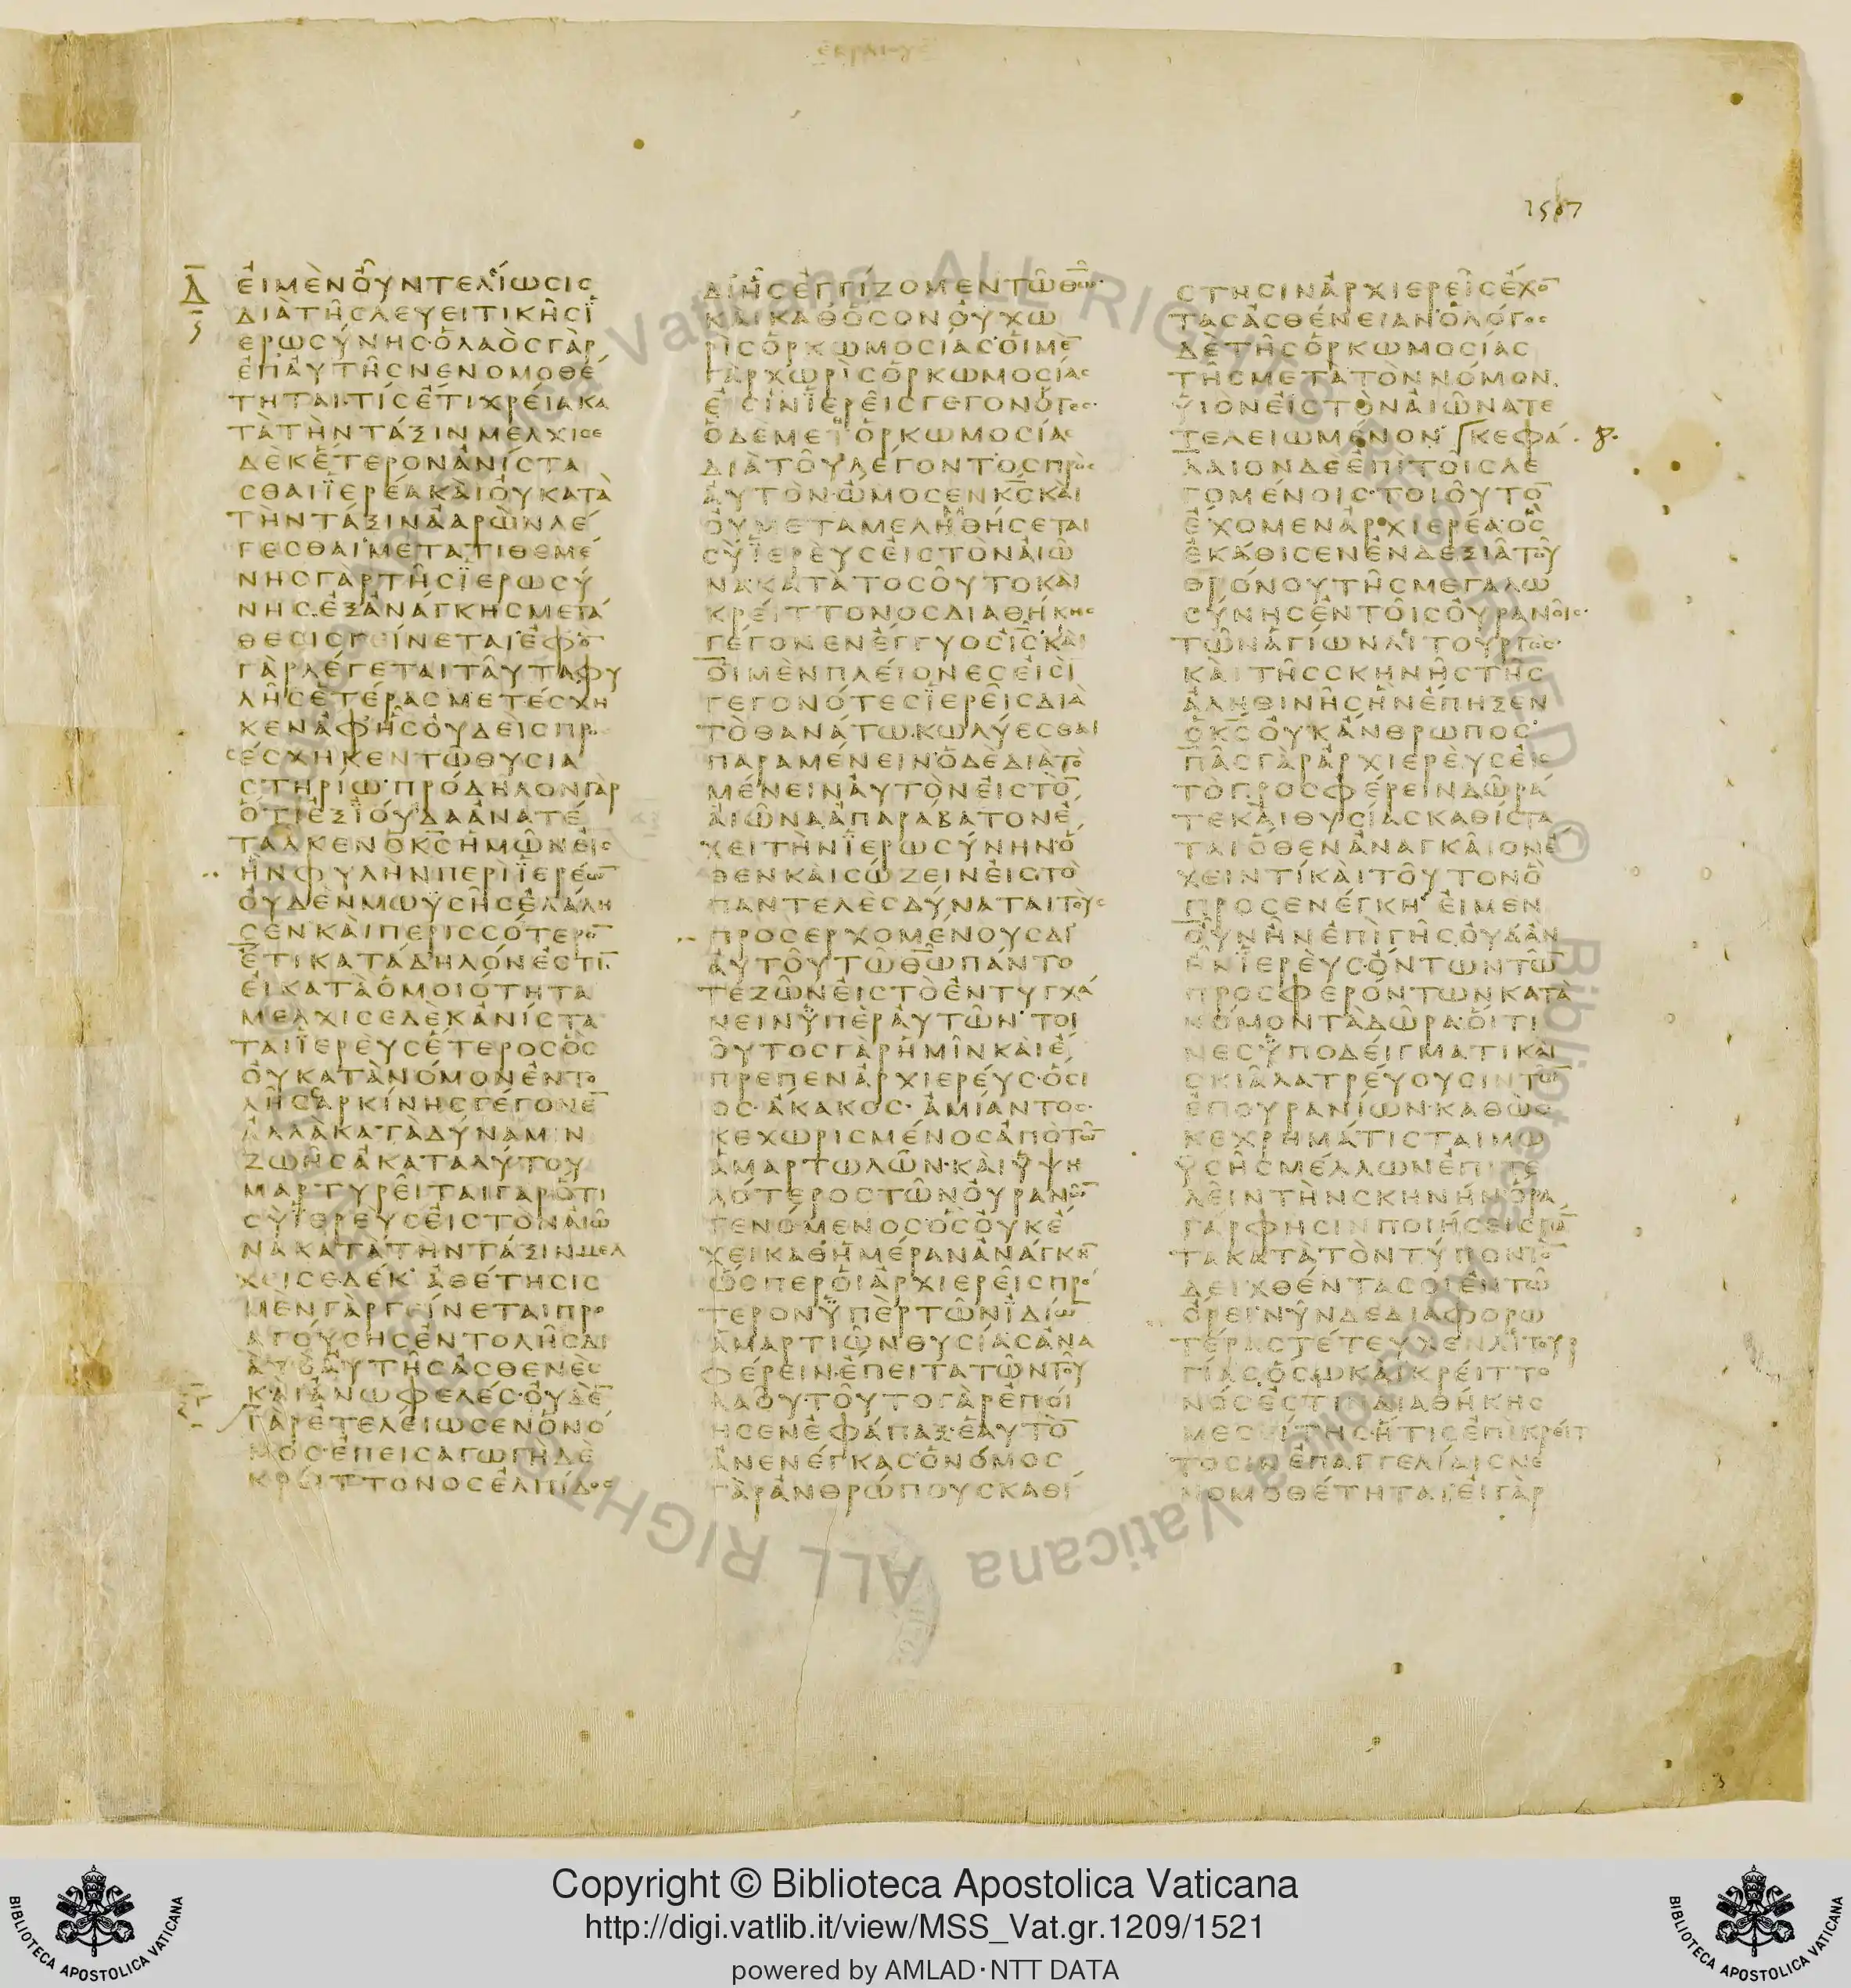 1507
Δ
ΕΙΜΕΝΟΥΝΤΕΛΙΩϹΙϹ
ΔΙΑΤΗϹΛΕΥΕΙΤΙΚΗϹΪ
ΕΡΩϹΥΝΗϹ·ΟΛΑΟϹΓΑΡ
ΕΠΑΥΤΗϹΝΕΝΟΜΟΘΕ
ΤΗΤΑΙ·ΤΙϹΕΤΙΧΡΕΙΑΚΑ
ΤΑΤΗΝΤΑΞΙΝΜΕΛΧΙϹΕ
ΔΕΚΕΤΕΡΟΝΑΝΙϹΤΑ
ϹΘΑΙΪΕΡΕΑΚΑΙΟΥΚΑΤΑ
ΤΗΝΤΑΞΙΝΑΑΡΩΝΛΕ
ΓΕϹΘΑΙ·ΜΕΤΑΤΙΘΕΜΕ
ΝΗϹΓΑΡΤΗϹΪΕΡΩϹΥ
ΝΗϹ·ΕΞΑΝΑΓΚΗϹΜΕΤΑ
ΘΕϹΙϹΓΕΙΝΕΤΑΙ·ΕΦΟ̅
ΓΑΡΛΕΓΕΤΑΙΤΑΥΤΑΦΥ
ΛΗϹΕΤΕΡΑϹΜΕΤΕϹΧΗ
ΚΕΝΑΦΗϹΟΥΔΕΙϹΠΡΟ
ϹΕϹΧΗΚΕΝΤΩΘΥϹΙΑ
ϹΤΗΡΙΩ·ΠΡΟΔΗΛΟΝΓΑΡ
ΟΤΙΕΞΪΟΥΔΑΑΝΑΤΕ
ΤΑΛΚΕΝΟΚ̅Ϲ̅ΗΜΩΝΕΙϹ
ΗΝΦΥΛΗΝΠΕΡΙΪΕΡΕΩ̅
ΟΥΔΕΝΜΩΥϹΗϹΕΛΑΛΗ
ϹΕΝΚΑΙΠΕΡΙϹϹΟΤΕΡΟ̅
ΕΤΙΚΑΤΑΔΗΛΟΝΕϹΤΙ̅·
ΕΙΚΑΤΑΟΜΟΙΟΤΗΤΑ
ΜΕΛΧΙϹΕΔΕΚΑΝΙϹΤΑ
ΤΑΙΪΕΡΕΥϹΕΤΕΡΟϹΟϹ
ΟΥΚΑΤΑΝΟΜΟΝΕΝΤΟ
ΛΗϹϹΑΡΚΙΝΗϹΓΕΓΟΝΕ̅
ΑΛΛΑΚΑΤΑΔΥΝΑΜΙΝ
ΖΩΗϹΑΚΑΤΑΛΥΤΟΥ
ΜΑΡΤΥΡΕΙΤΑΙΓΑΡΟΤΙ
ϹΥΪΕΡΕΥϹΕΙϹΤΟΝΑΙΩ
ΝΑΚΑΤΑΤΗΝΤΑΞΙΝΜΕΛ
ΧΕΙϹΕΔΕΚ·ΑΘΕΤΗϹΙϹ
ΜΕΝΓΑΡΓΕΙΝΕΤΑΙΠΡΟ
ΑΓΟΥϹΗϹΕΝΤΟΛΗϹΔΙ
ΑΤΟΑΥΤΗϹΑϹΘΕΝΕϹ
ΚΑΙΑΝΩΦΕΛΕϹ·ΟΥΔΕ̅
ΓΑΡΕΤΕΛΕΙΩϹΕΝΟΝΟ
ΜΟϹ·ΕΠΕΙϹΑΓΩΓΗΔΕ
ΚΡΕΙΤΤΟΝΟϹΕΛΠΙΔΟϹ
ΔΙΗϹΕΓΓΙΖΟΜΕΝΤΩΘ̅Ω̅·
ΚΑΙΚΑΘΟϹΟΝΟΥΧΩ
ΡΙϹΟΡΚΩΜΟϹΙΑϹ·ΟΙΜΕ̅
ΓΑΡΧΩΡΙϹΟΡΚΩΜΟϹΙΑϹ
ΕΙϹΙΝΪΕΡΕΙϹΓΕΓΟΝΟΤΕϹ·
ΟΔΕΜΕΤΟΡΚΩΜΟϹΙΑϹ
ΔΙΑΤΟΥΛΕΓΟΝΤΟϹΠΡΟϹ
ΑΥΤΟΝ·ΩΜΟϹΕΝΚ̅Ϲ̅ΚΑΙ
ΟΥΜΕΤΑΜΕΛΗΘΗϹΕΤΑΙ
ϹΥΪΕΡΕΥϹΕΙϹΤΟΝΑΙΩ
ΝΑ·ΚΑΤΑΤΟϹΟΥΤΟΚΑΙ
ΚΡΕΙΤΤΟΝΟϹΔΙΑΘΗΚΗϹ
ΓΕΓΟΝΕΝΕΓΓΥΟϹΙ̅Ϲ̅·ΚΑΙ
ΟΙΜΕΝΠΛΕΙΟΝΕϹΕΙϹΙ
ΓΕΓΟΝΟΤΕϹΪΕΡΕΙϹΔΙΑ
ΤΟΘΑΝΑΤΩΚΩΛΥΕϹΘΑΙ
ΠΑΡΑΜΕΝΕΙΝ·ΟΔΕΔΙΑΤΟ
ΜΕΝΕΙΝΑΥΤΟΝΕΙϹΤΟ̅
ΑΙΩΝΑΑΠΑΡΑΒΑΤΟΝΕ
ΧΕΙΤΗΝΪΕΡΩϹΥΝΗΝ·Ο
ΘΕΝΚΑΙϹΩΖΕΙΝΕΙϹΤΟ
ΠΑΝΤΕΛΕϹΔΥΝΑΤΑΙΤΟΥϹ
ΠΡΟϹΕΡΧΟΜΕΝΟΥϹΔΙ
ΑΥΤΟΥΤΩΘ̅Ω̅ΠΑΝΤΟ
ΤΕΖΩΝΕΙϹΤΟΕΝΤΥΓΧΑ
ΝΕΙΝΫΠΕΡΑΥΤΩΝ·ΤΟΙ
ΟΥΤΟϹΓΑΡΗΜΙΝΚΑΙΕ
ΠΡΕΠΕΝΑΡΧΙΕΡΕΥϹ·ΟϹΙ
ΟϹ·ΑΚΑΚΟϹ·ΑΜΙΑΝΤΟϹ·
ΚΕΧΩΡΙϹΜΕΝΟϹΑΠΟΤΩ̅
ΑΜΑΡΤΩΛΩΝ·ΚΑΙΫΨΗ
ΛΟΤΕΡΟϹΤΩΝΟΥΡΑΝΩ̅
ΓΕΝΟΜΕΝΟϹ·ΟϹΟΥΚΕ
ΧΕΙΚΑΘΗΜΕΡΑΝΑΝΑΓΚΗ̅
ΩϹΠΕΡΟΙΑΡΧΙΕΡΕΙϹΠΡΟ
ΤΕΡΟΝΫΠΕΡΤΩΝΪΔΙΩ̅
ΑΜΑΡΤΙΩΝΘΥϹΙΑϹΑΝΑ
ΦΕΡΕΙΝ·ΕΠΕΙΤΑΤΩΝΤΟΥ
ΛΑΟΥ·ΤΟΥΤΟΓΑΡΕΠΟΙ
ΗϹΕΝΕΦΑΠΑΞ·ΕΑΥΤΟ̅
ΑΝΕΝΕΓΚΑϹ·ΟΝΟΜΟϹ
ΓΑΡΑΝΘΡΩΠΟΥϹΚΑΘΙ
ϹΤΗϹΙΝΑΡΧΙΕΡΕΙϹΕΧΟ̅
ΤΑϹΑϹΘΕΝΕΙΑΝ·ΟΛΟΓΟϹ
ΔΕΤΗϹΟΡΚΩΜΟϹΙΑϹ
ΤΗϹΜΕΤΑΤΟΝΝΟΜΟΝ
ΫΙΟΝΕΙϹΤΟΝΑΙΩΝΑΤΕ
ΤΕΛΕΙΩΜΕΝΟΝ·ΚΕΦΑ 8·
ΛΑΙΟΝΔΕΕΠΙΤΟΙϹΛΕ
ΓΟΜΕΝΟΙϹ·ΤΟΙΟΥΤΟ̅
ΕΧΟΜΕΝΑΡΧΙΕΡΕΑ·ΟϹ
ΕΚΑΘΙϹΕΝΕΝΔΕΞΙΑΤΟΥ
ΘΡΟΝΟΥΤΗϹΜΕΓΑΛΩ
ϹΥΝΗϹΕΝΤΟΙϹΟΥΡΑΝΟΙϹ·
ΤΩΝΑΓΙΩΝΛΙΤΟΥΡΓΟϹ·
ΚΑΙΤΗϹϹΚΗΝΗϹΤΗϹ
ΑΛΗΘΙΝΗϹΗΝΕΠΗΞΕΝ
ΟΚ̅Ϲ̅ΟΥΚΑΝΘΡΩΠΟϹ·
ΠΑϹΓΑΡΑΡΧΙΕΡΕΥϹΕΙϹ
ΤΟΠΡΟϹΦΕΡΕΙΝΔΩΡΑ
ΤΕΚΑΙΘΥϹΙΑϹΚΑΘΙϹΤΑ
ΤΑΙ·ΟΘΕΝΑΝΑΓΚΑΙΟΝΕ
ΧΕΙΝΤΙΚΑΙΤΟΥΤΟΝΟ
ΠΡΟϹΕΝΕΓΚΗ·ΕΙΜΕΝ
ΟΥΝΗΝΕΠΙΓΗϹ·ΟΥΔΑΝ
ΗΝΪΕΡΕΥϹ·ΟΝΤΩΝΤΩ̅
ΠΡΟϹΦΕΡΟΝΤΩΝΚΑΤΑ
ΝΟΜΟΝΤΑΔΩΡΑ·ΟΙΤΙ
ΝΕϹΫΠΟΔΕΙΓΜΑΤΙΚΑΙ
ϹΚΙΑΛΑΤΡΕΥΟΥϹΙΝΤΩ̅
ΕΠΟΥΡΑΝΙΩΝ·ΚΑΘΩϹ
ΚΕΧΡΗΜΑΤΙϹΤΑΙΜΩ
ΫϹΗϹΜΕΛΛΩΝΕΠΙΤΕ
ΛΕΙΝΤΗΝϹΚΗΝΗΝ·ΟΡΑ
ΓΑΡΦΗϹΙΝΠΟΙΗϹΕΙϹΠΑ̅
ΤΑΚΑΤΑΤΟΝΤΥΠΟΝΤΟ̅
ΔΕΙΧΘΕΝΤΑϹΟΙΕΝΤΩ
ΟΡΕΙ·ΝΥΝΔΕΔΙΑΦΟΡΩ
ΤΕΡΑϹΤΕΤΕΥΧΕΝΛΙΤΟΥΡ
ΓΙΑϹ·ΟϹΩΚΑΙΚΡΕΙΤΤΟ
ΝΟϹΕϹΤΙΝΔΙΑΘΗΚΗϹ
ΜΕϹΙΤΗϹ·ΗΤΙϹΕΠΙΚΡΕΙΤ
ΤΟϹΙΝΕΠΑΓΓΕΛΙΑΙϹΝΕ
ΝΟΜΟΘΕΤΗΤΑΙ·ΕΙΓΑΡ
Copyright © Biblioteca Apostolica Vaticana
http://digi.vatlib.it/view/MSS_Vat.gr.1209/1521
powered by AMLAD·NTT DATA
BIBLIOTECA APOSTOLICA VATICANA
BIBLIOTECA APOSTOLICA VATICANA